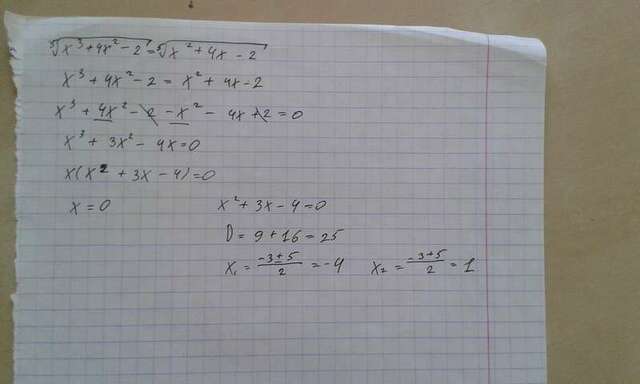 ⁵√x³+4x²-2 = ⁵√x²+4x-2
x³+4x²-2 = x²+4x-2
x³+4x²-2-x²-4x+2=0
x³+3x²-4x=0
x(x²+3x-4)=0
x=0 x²+3x-4=0
D=9+16=25
x₁=(-3±5)/2=-4 x₂=(-3+5)/2=1